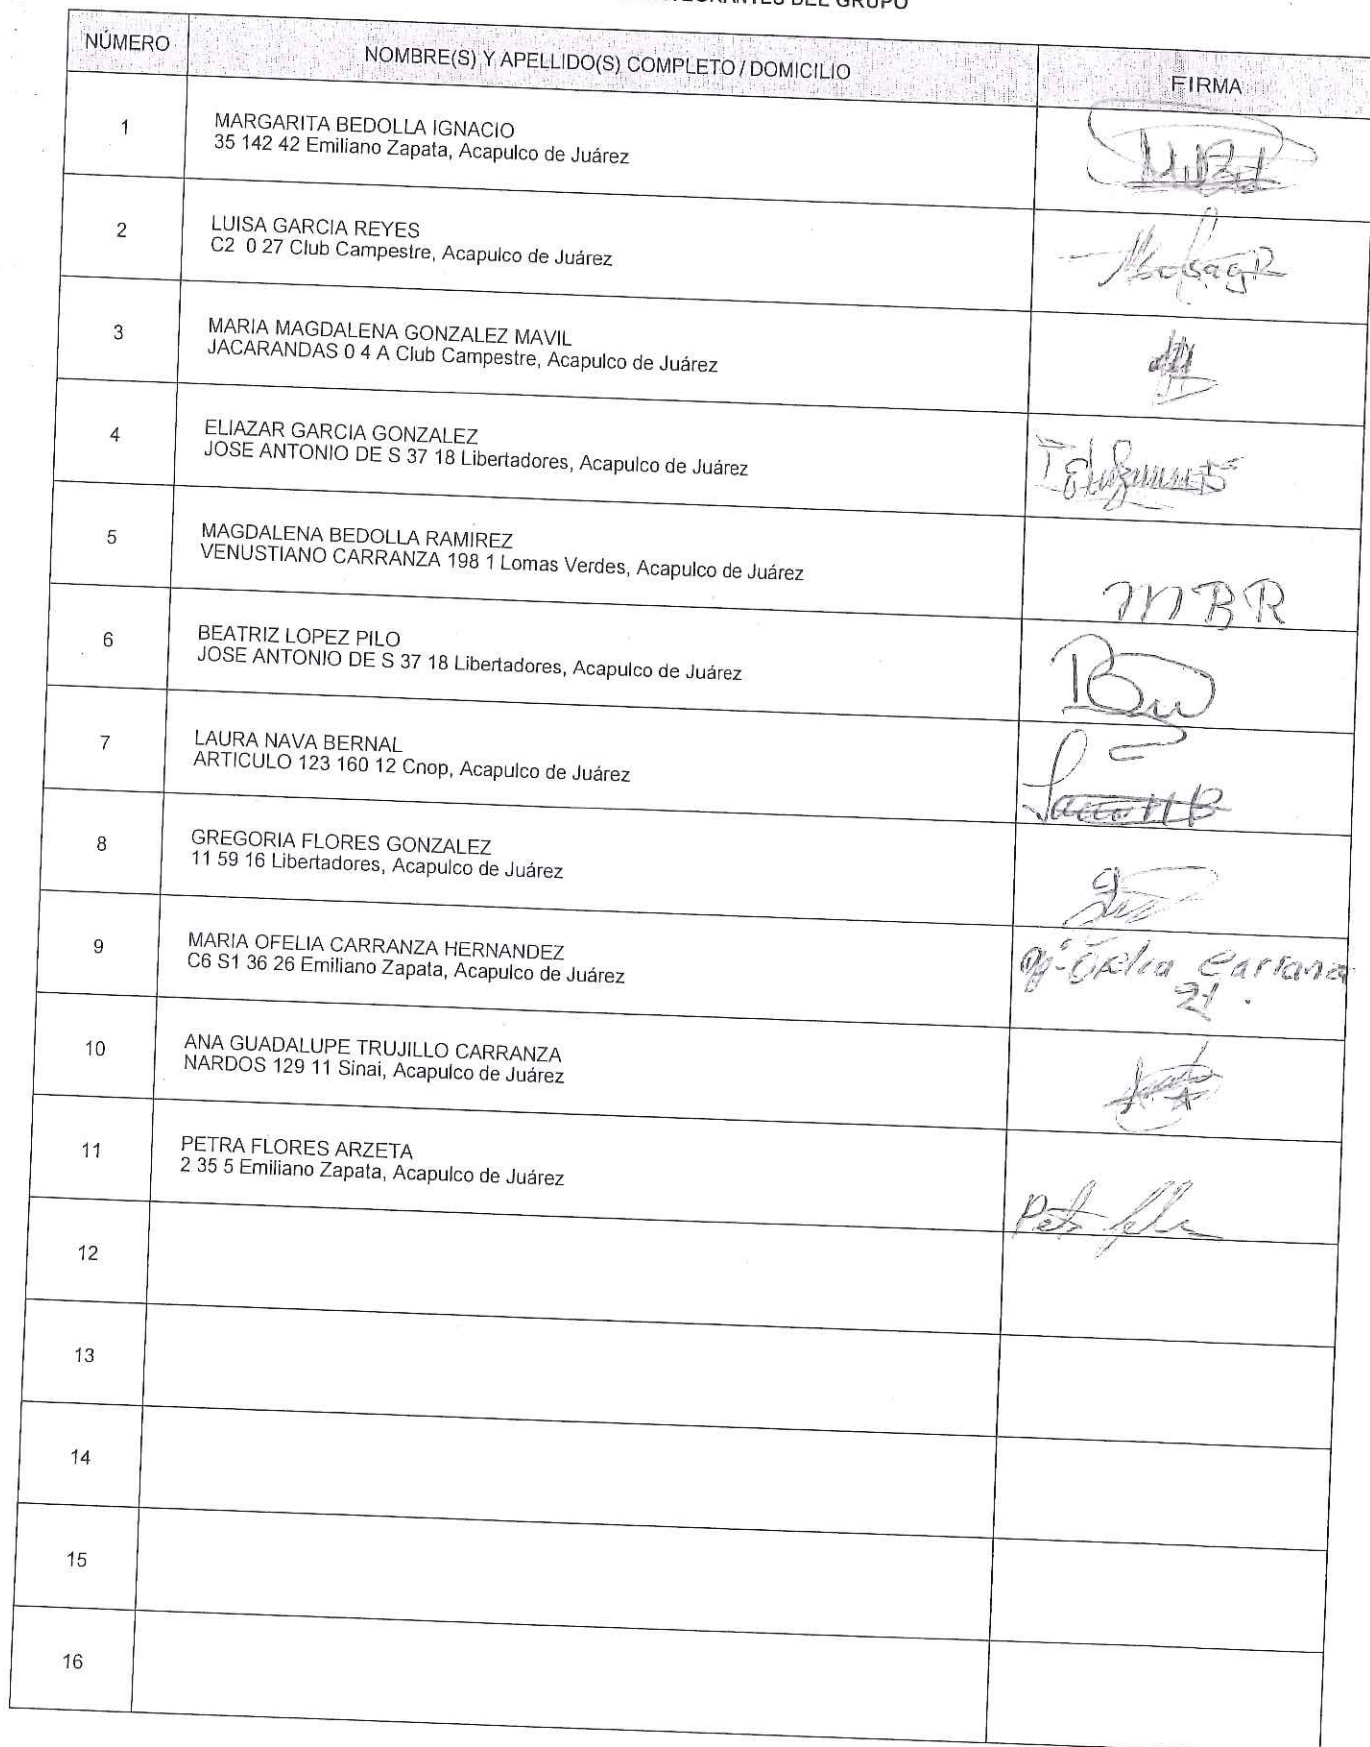 DEL GRUPO
NÚMERO
NOMBRE(S) Y APELLIDO(S) COMPLETO / DOMICILIO
FIRMA
1
MARGARITA BEDOLLA IGNACIO
35 142 42 Emiliano Zapata, Acapulco de Juárez
2
LUISA GARCIA REYES
C2 0 27 Club Campestre, Acapulco de Juárez
3
MARIA MAGDALENA GONZALEZ MAVIL
JACARANDAS 0 4 A Club Campestre, Acapulco de Juárez
4
ELIAZAR GARCIA GONZALEZ
JOSE ANTONIO DE S 37 18 Libertadores, Acapulco de Juárez
5
MAGDALENA BEDOLLA RAMIREZ
VENUSTIANO CARRANZA 198 1 Lomas Verdes, Acapulco de Juárez
MBR
6
BEATRIZ LOPEZ PILO
JOSE ANTONIO DE S 37 18 Libertadores, Acapulco de Juárez
7
LAURA NAVA BERNAL
ARTICULO 123 160 12 Cnop, Acapulco de Juárez
8
GREGORIA FLORES GONZALEZ
11 59 16 Libertadores, Acapulco de Juárez
9
MARIA OFELIA CARRANZA HERNANDEZ
C6 S1 36 26 Emiliano Zapata, Acapulco de Juárez
Ofelia Carranza
10
ANA GUADALUPE TRUJILLO CARRANZA
NARDOS 129 11 Sinai, Acapulco de Juárez
11
PETRA FLORES ARZETA
2 35 5 Emiliano Zapata, Acapulco de Juárez
12
13
14
15
16